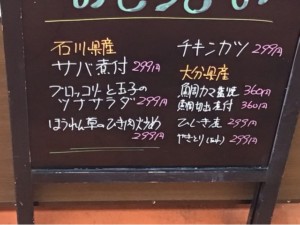 石川県産
サバ煮付 299円
ブロッコリーと玉子の
ツナサラダ 299円
ほうれん草のひき肉炒め
299円
チキンカツ 299円
大分県産
鯛カマ塩焼 360円
鯛切出煮付 360円
ひじき煮 299円
やきとり 299円